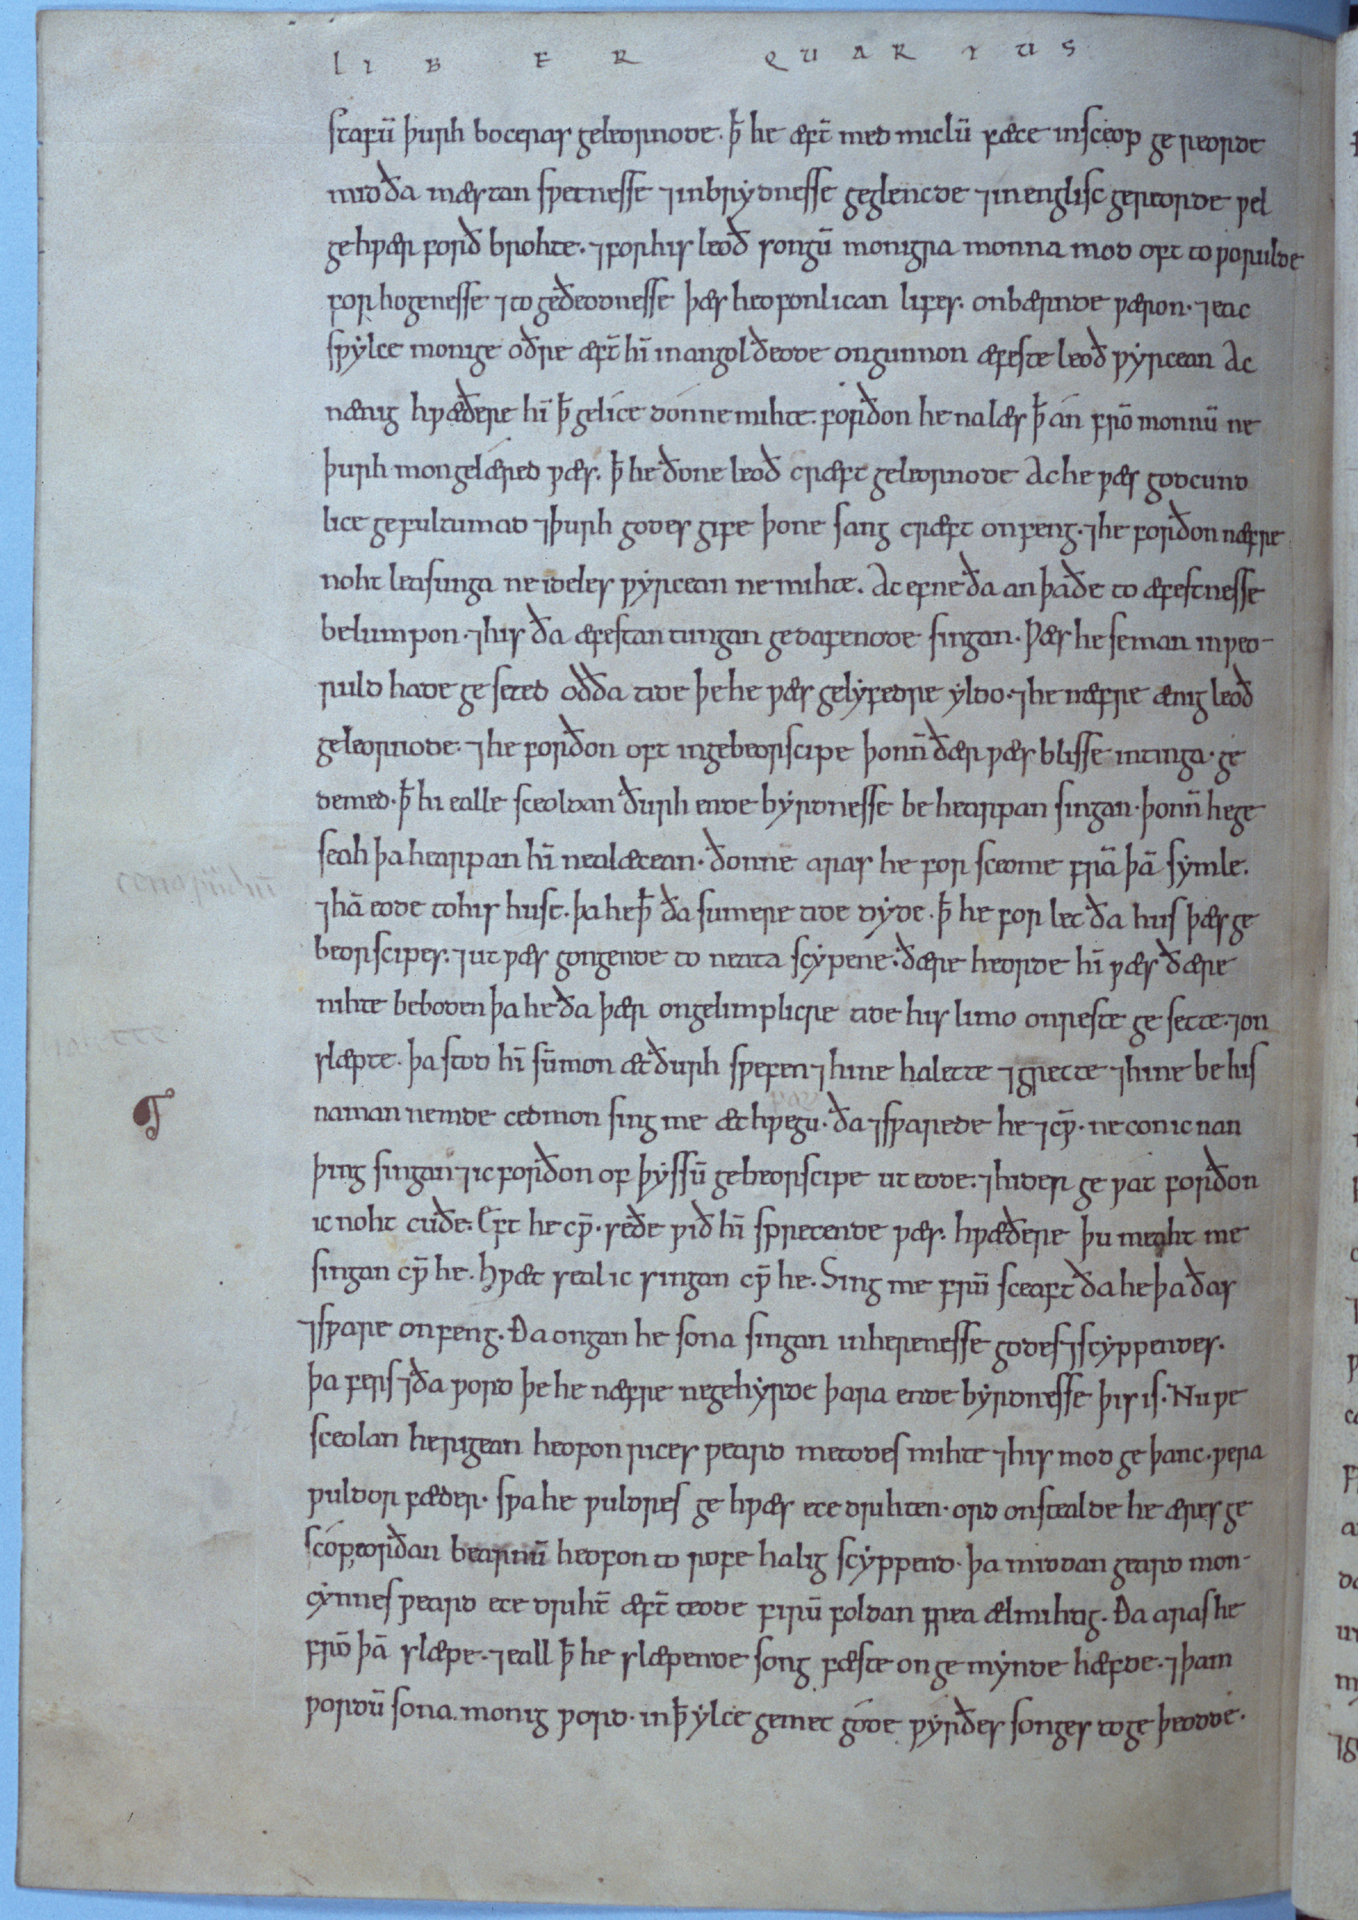 LIBER QUARTUS
stafū þurh boceras geleornode. ꝥ he æft̄ med miclū fæce in sceop ge reorde
mid ða mæstan spetnesse ⁊ inbrẏdnesse geglencde ⁊ in englisc gereorde ƿel
gehƿær forð brohte. ⁊ for his leoð songū monigra monna mod oft to ƿorulde
forhogenesse ⁊ to geðeodnesse þæs heofonlican lifes. onbærnde ƿæron. ⁊ eac
sƿẏlce monige oðre æft̄ hī in angol ðeode ongunnon æfeste leoð ƿẏrcean Ac
nænig hƿæðere hī ꝥ gelice don ne mihte. forðon he nalæs ꝥ án frō monnū ne
þurh mon gelæred ƿæs. ꝥ he ðone leoð cræft geleornode Ac he ƿæs godcund
lice gefultumad ⁊ þurh godes gife þone sang cræft onfeng. ⁊ he forðon næfre
noht leasunga ne ideles ƿẏrcean ne mihte. Ac efne ða an þa ðe to æfestnesse
belumpon. ⁊ his ða æfestan tungan gedafenode singan. Ƿæs he se man in ƿeo-
ruld hade geseted oð ða tide þe he ƿæs gelẏfedre ẏldo. ⁊ he næfre ænig leoð
geleornode. ⁊ he forðon oft in gebeorscipe þonn̄ ðær ƿæs blisse intinga. ge
demed. ꝥ hi ealle sceoldan ðurh ende bẏrdnesse be hearpan singan. þonn̄ he ge
seah þa hearpan hī nealæcean. ðonne aras he for sceome frā þā sẏmle.
⁊ hā eode to his huse. þa he ꝥ ða sumere tide dẏde. ꝥ he forlet ða hus þæs ge
beorscipes. ⁊ ut ƿæs gongende to neata scẏpene. ðære heorde hī ƿæs ðære
nihte beboden þa he ða þær on gelimplicre tide his limo on reste gesette. ⁊ on
slæpte. þa stod hī sū mon æt ðurh sƿefen ⁊ hine halette ⁊ grette ⁊ hine be his
naman nemde cedmon sing me æt hƿegu. ða ⁊sƿarede he ⁊ cƿ̄. ne con ic nan
þing singan ⁊ ic forðon of þẏssū gebeorscipe ut eode. ⁊ hider geƿat forðon
ic noht cuðe. Eft he cƿ̄. se ðe ƿið hī sprecende ƿæs. hƿæðere þu meaht me
singan cƿ̄ he. Hƿæt seal ic singan cƿ̄ he. Sing me frūsceaft ða he þa ðas
⁊sƿare onfeng. Ða ongan he sona singan in herenesse godes ⁊ scẏppendes.
þa fers ⁊ ða ƿord þe he næfre ne gehẏrde þara ende bẏrdnesse þis is. Nu ƿe
sceolan herigean heofon rices ƿeard metodes mihte ⁊ his mod geþanc. ƿera
ƿuldor fæder. sƿa he ƿuldres gehƿæs ece drihten. ord onstealde he æres ge
scóp eorðan bearnū heofon to rofe halig scẏppend. þa middan geard mon-
cẏnnes ƿeard ece driht̄ æft̄ teode firū foldan frea ælmihtig. Ða aras he
frō þā slæpe. ⁊ eall ꝥ he slæpende song fæste on gemẏnde hæfde. ⁊ þam
ƿordū sona monig ƿord. in ꝥ ẏlce gemet góde ƿẏrðes songes to geþeodde.